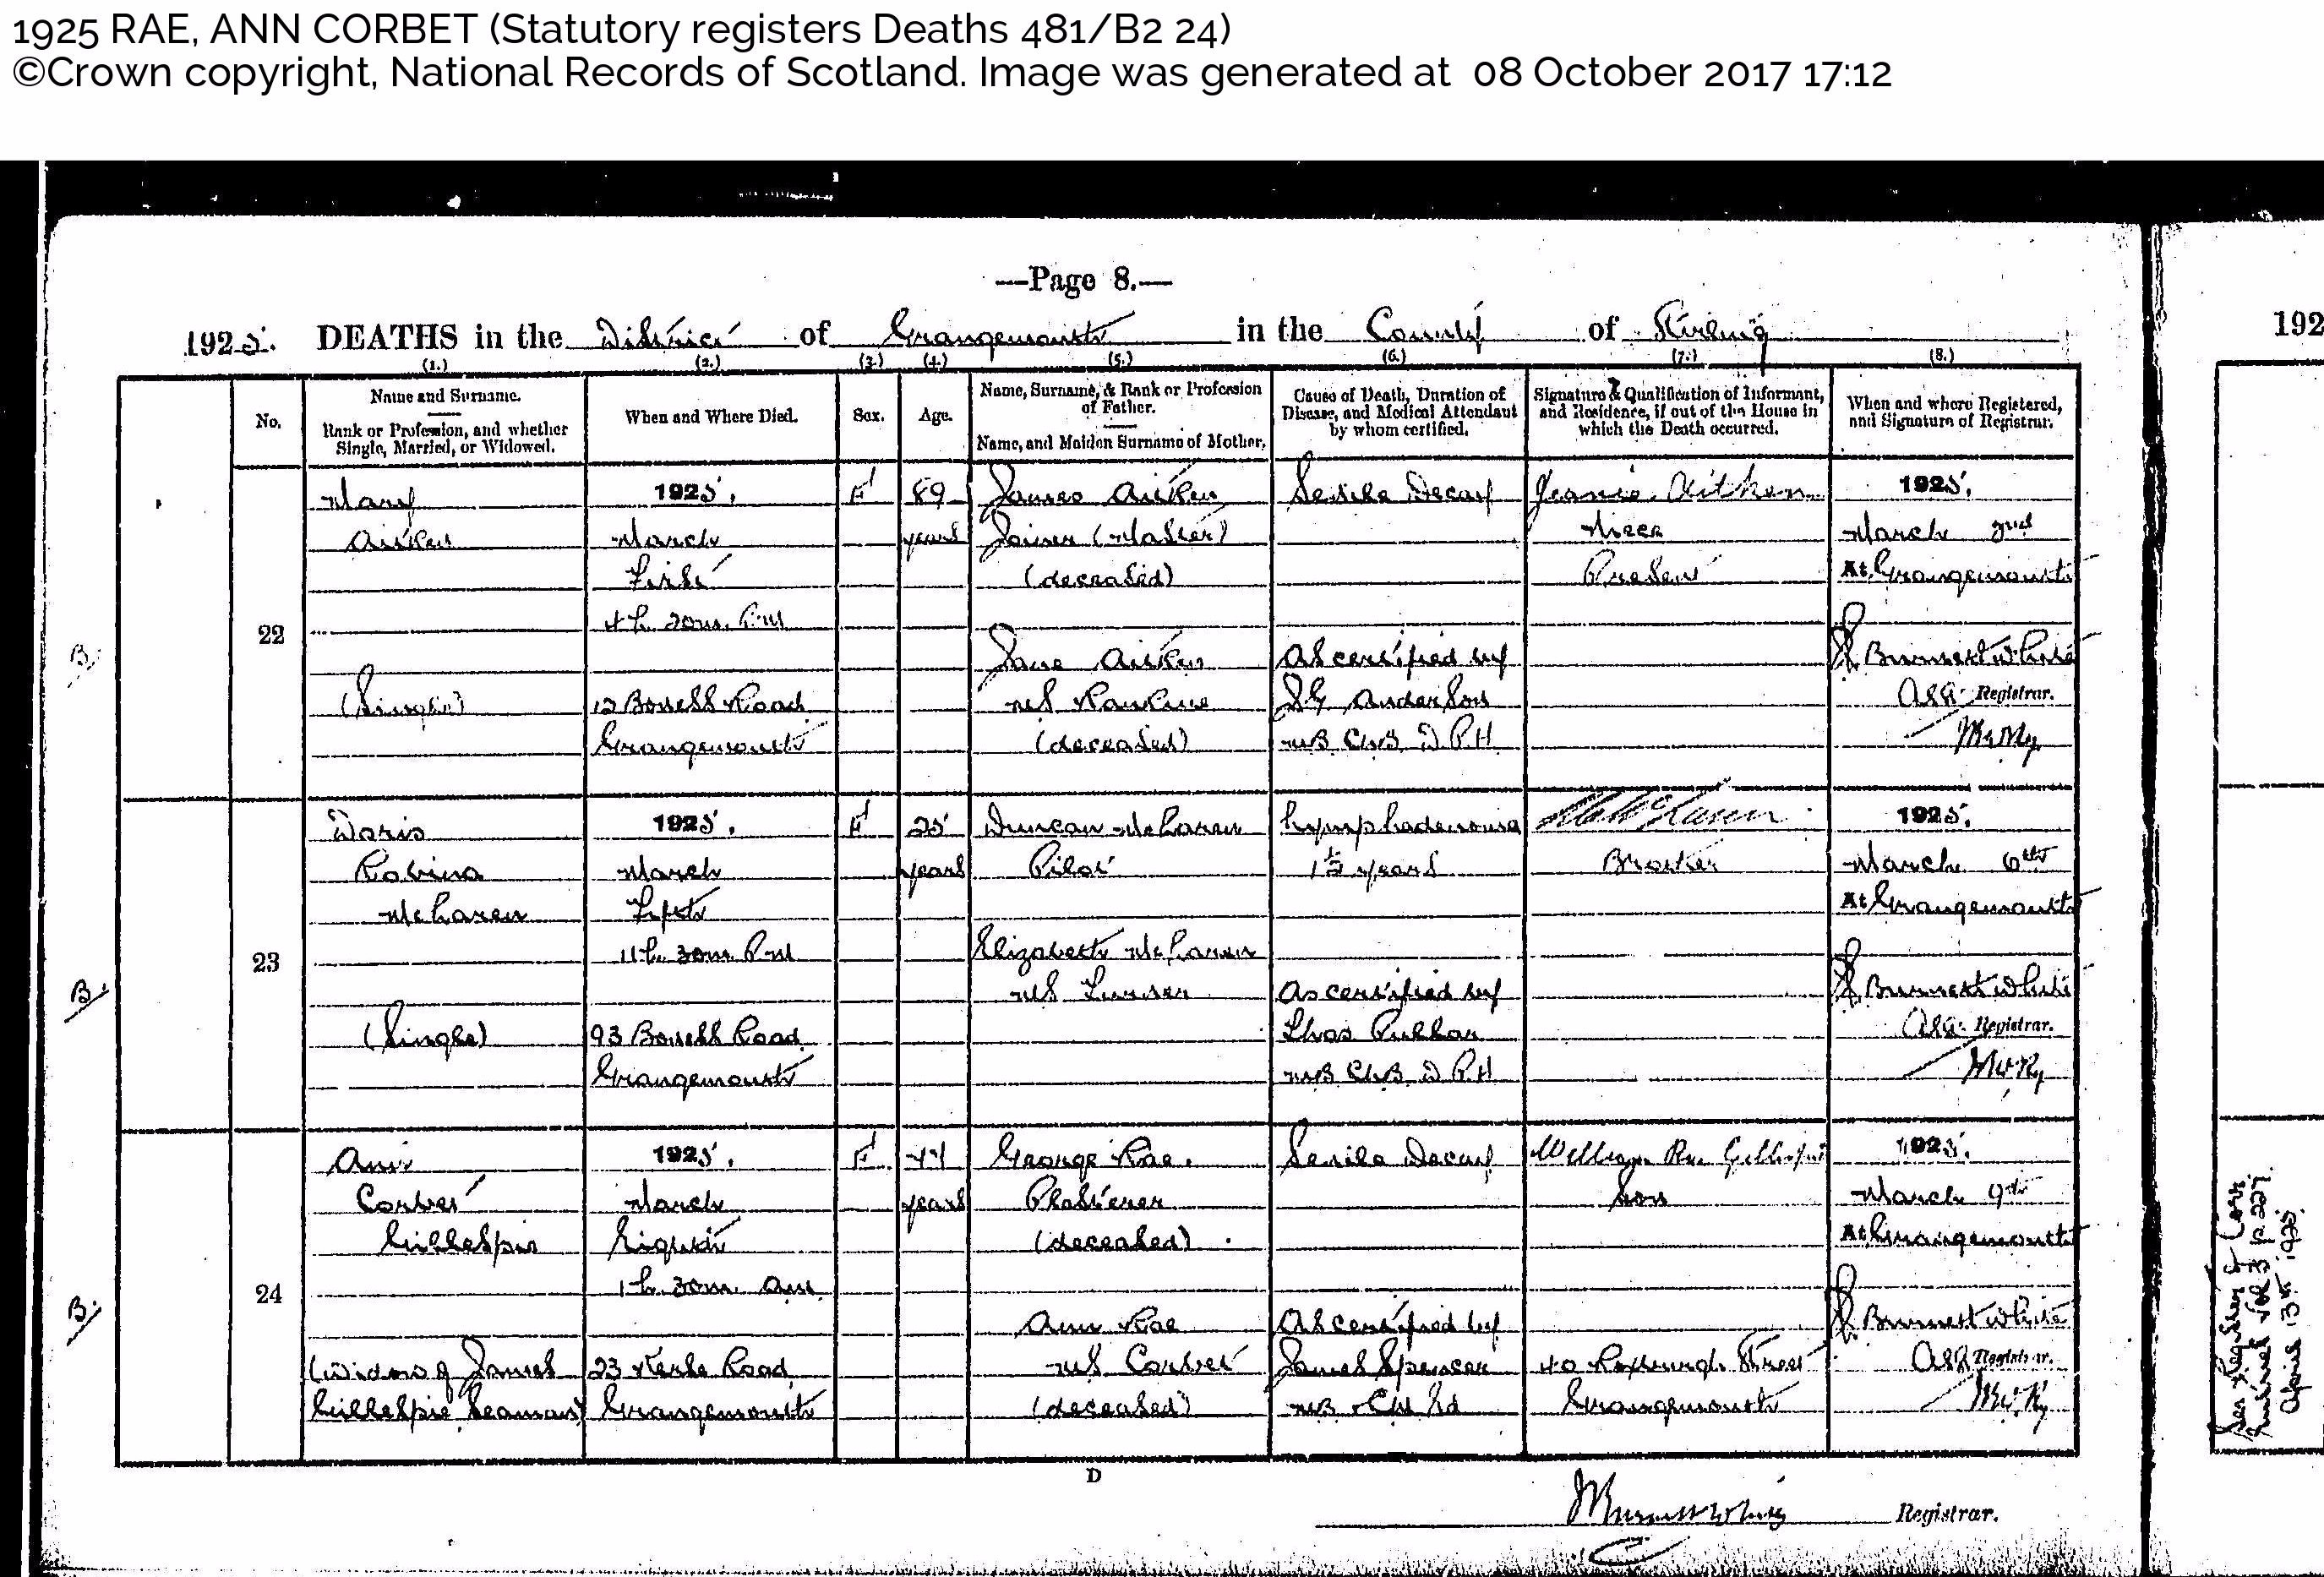 1925 RAE, ANN CORBET (Statutory registers Deaths 481/B2 24)
©Crown copyright, National Records of Scotland. Image was generated at 08 October 2017 17:12
—Page 8.—
1925. DEATHS in the District of Grangemouth in the County of Stirling
(1.) (2.) (3.) (4.) (5.) (6.) (7.) (8.)
No.
Name and Surname.
Rank or Profession, and whether
Single, Married, or Widowed.
When and Where Died.
Sex.
Age.
Name, Surname, & Rank or Profession
of Father.
Name, and Maiden Surname of Mother.
Cause of Death, Duration of
Disease, and Medical Attendant
by whom certified.
Signature & Qualification of Informant,
and Residence, if out of the House in
which the Death occurred.
When and where Registered,
and Signature of Registrar.
22
Mary
Aitken
(Single)
1925.
March
First
4h. 20m. P.M
12 Boness Road
Grangemouth
F
89
years
James Aitken
Joiner (Master)
(deceased)
Jane Aitken
MS Rankine
(deceased)
Senile Decay
As certified by
SG Anderson
MB ChB DPH
Jeanie Aitken
Niece
Present
1925.
March 2nd
At Grangemouth
J Burnett White
Asst Registrar.
B.
23
Doris
Robina
McLaren
(Single)
1925.
March
Fifth
11h. 30m. P.M
93 Boness Road
Grangemouth
F
25
years
Duncan McLaren
Pilot
Elizabeth McLaren
MS Turner
Lymphadenoma
1½ years
As certified by
Thos Pullar
MB ChB DPH
McLaren
Brother
1925.
March 6th
At Grangemouth
J Burnett White
Asst Registrar.
B.
24
Ann
Corbet
Gillespie
(Widow of James
Gillespie Seaman)
1925.
March
Eighth
1h. 30m. AM.
23 Kerse Road
Grangemouth
F
77
years
George Rae.
Plasterer
(deceased)
Ann Rae
MS Corbet
(deceased)
Senile Decay
As certified by
James Spencer
MB CM Ed
William Rae Gillespie
Son
40 Roxburgh Street
Grangemouth
1925.
March 9th
At Grangemouth
J Burnett White
Asst Registrar.
B.
D
J Burnett White Registrar.
192
See Register of Corrd
Entries Vol 3 p 221.
April 13th 1925.